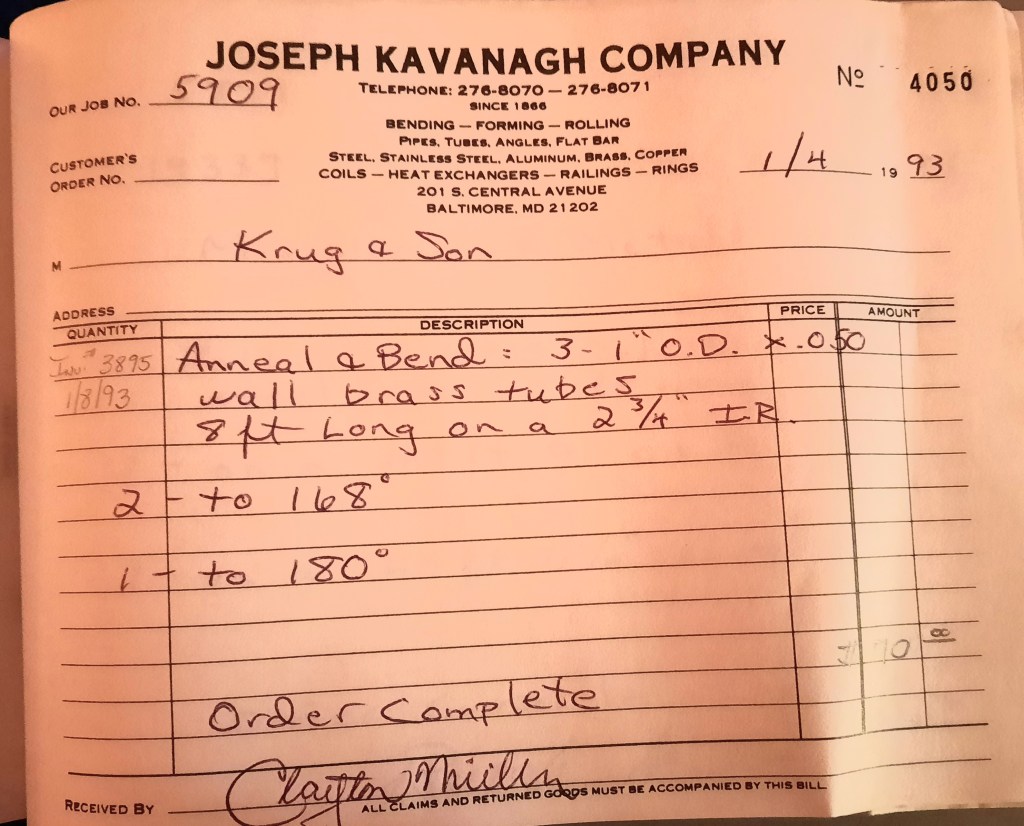 JOSEPH KAVANAGH COMPANY
Nº 4050
OUR JOB NO. 5909
TELEPHONE: 276-8070 — 276-8071
SINCE 1866
BENDING — FORMING — ROLLING
PIPES, TUBES, ANGLES, FLAT BAR
STEEL, STAINLESS STEEL, ALUMINUM, BRASS, COPPER
COILS — HEAT EXCHANGERS — RAILINGS — RINGS
201 S. CENTRAL AVENUE
BALTIMORE, MD 21202
CUSTOMER'S
ORDER NO.
1/4 19 93
M Krug & Son
ADDRESS
QUANTITY DESCRIPTION PRICE AMOUNT
Inv.# 3895 Anneal & Bend: 3-1" O.D. x .050
1/8/93 wall brass tubes
8 ft Long on a 2 3/4" I.R.
2 - to 168°
1 - to 180°
70 00
Order Complete
RECEIVED BY Clayton
ALL CLAIMS AND RETURNED GOODS MUST BE ACCOMPANIED BY THIS BILL